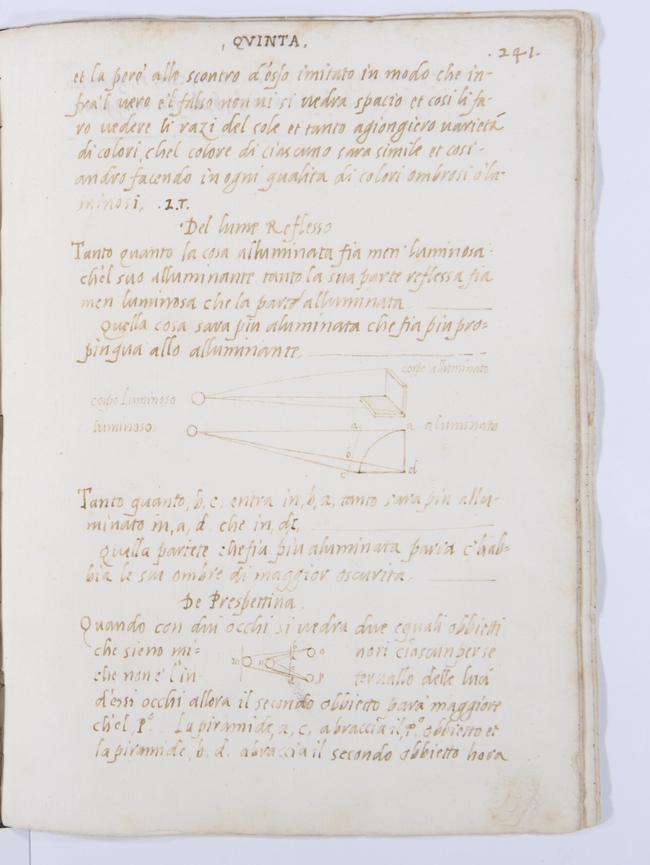 , QVINTA,
. 241.
et la pere' allo scontro d'esso imitato in modo che in-
fra'l vero e'l falso non vi si vedra spacio et cosi li fa-
ro vedere li razi del sole et tanto agiongiero varietà
di colori, chel colore di ciascuno sara simile et cosi
andro facendo in ogni qualita di colori ombrosi o lu-
minosi,
Del lume Reflesso
Tanto quanto la cosa alluminata fia men' luminosa
ch'el suo alluminante tanto la sua parte reflessa fia
men luminosa che la parte alluminata
Quella cosa sara piu aluminata che fia piu pro=
pinqua allo alluminante,
corpo alluminato
corpo luminoso
luminoso. a aluminato
b
c d
Tanto quanto, b, c, entra in, b, a, tanto sara piu allu-
minato in, a, d, che in, dc,
Quella parete che fia piu aluminata parra c'hab-
bia le sue ombre di maggior oscurita,
De Prespettina,
Quando con dui occhi si vedra due equali obbietti
che sieno mi= nori ciascun per se
che non e' l'in tervallo delle luci
d'essi occhi allora il secondo obbietto parà maggiore
ch'el, p.º La piramide, a, c, abraccia il, p.º obbietto et
la piramide, b, d, abraccia il secondo obbietto hora